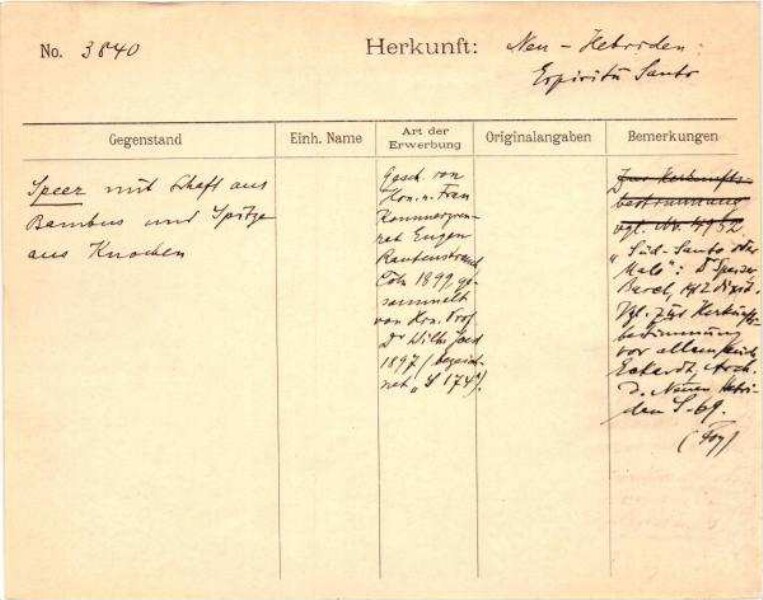 No. 3840
Herkunft: Neu-Hebriden:
Espiritu Santo
Gegenstand
Einh. Name
Art der
Erwerbung
Originalangaben
Bemerkungen
Speer mit Schaft aus
Bambus und Spitze
aus Knochen
Gesch. von
Hrn. u. Frau
Kommerzien-
rat Eugen
Rautenstrauch,
Cöln 1899, ge-
sammelt
von Hrn. Prof.
Dr Wilh. Joest
1897 (bezeich-
net „S 174").
Zur Herkunfts-
bestimmung
vgl. No. 4952
„Süd-Santo oder
Malo": Dr Speiser
Basel, 1912 dixit.
Vgl. zur Herkunfts-
bestimmung
vor allem auch
Eckardt, Arch.
d. Neuen Hebri-
den S. 69.
(Foy)